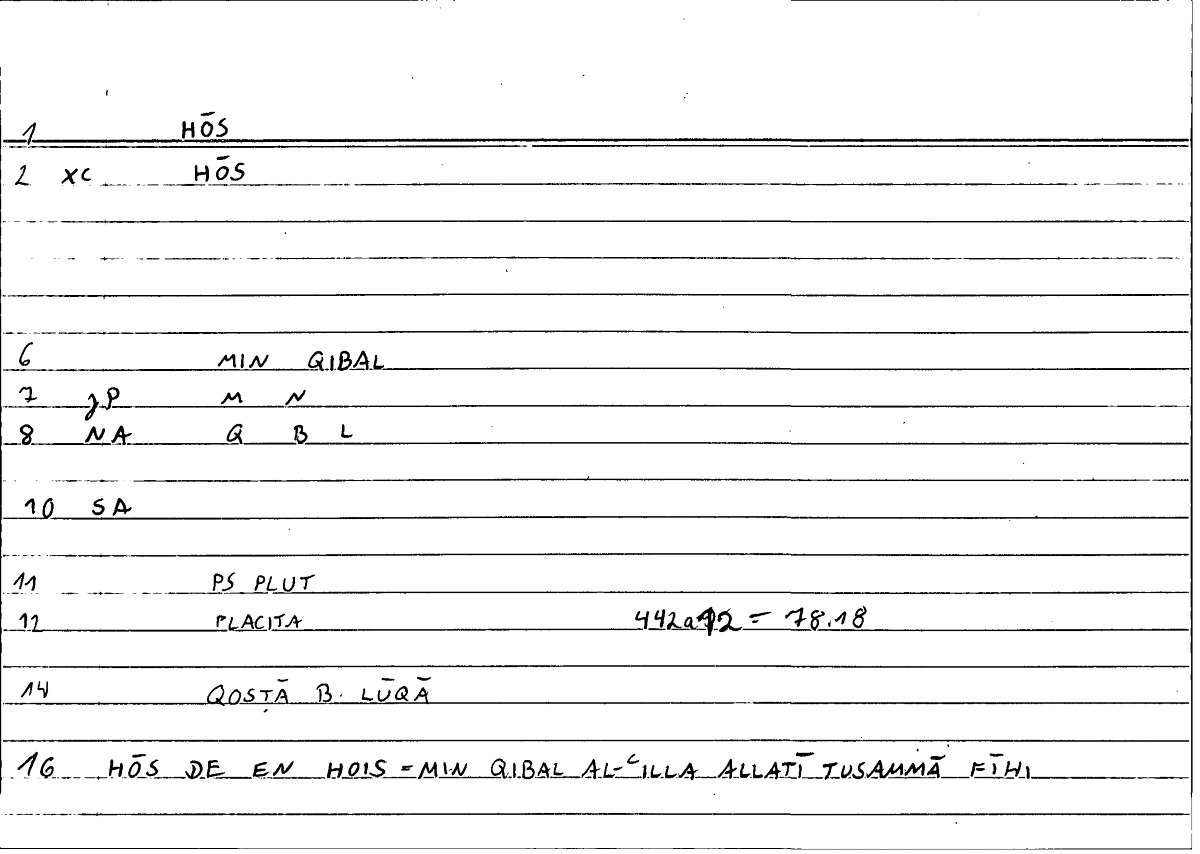 1 HŌS
2 XC HŌS
6 MIN QIBAL
7 JP M N
8 NA Q B L
10 SA
11 PS PLUT
12 PLACITA 442a12 = 78.18
14 QOSṬĀ B. LŪQĀ
16 HŌS DE EN HOIS = MIN QIBAL AL-ʿILLA ALLATĪ TUSAMMĀ FĪHI